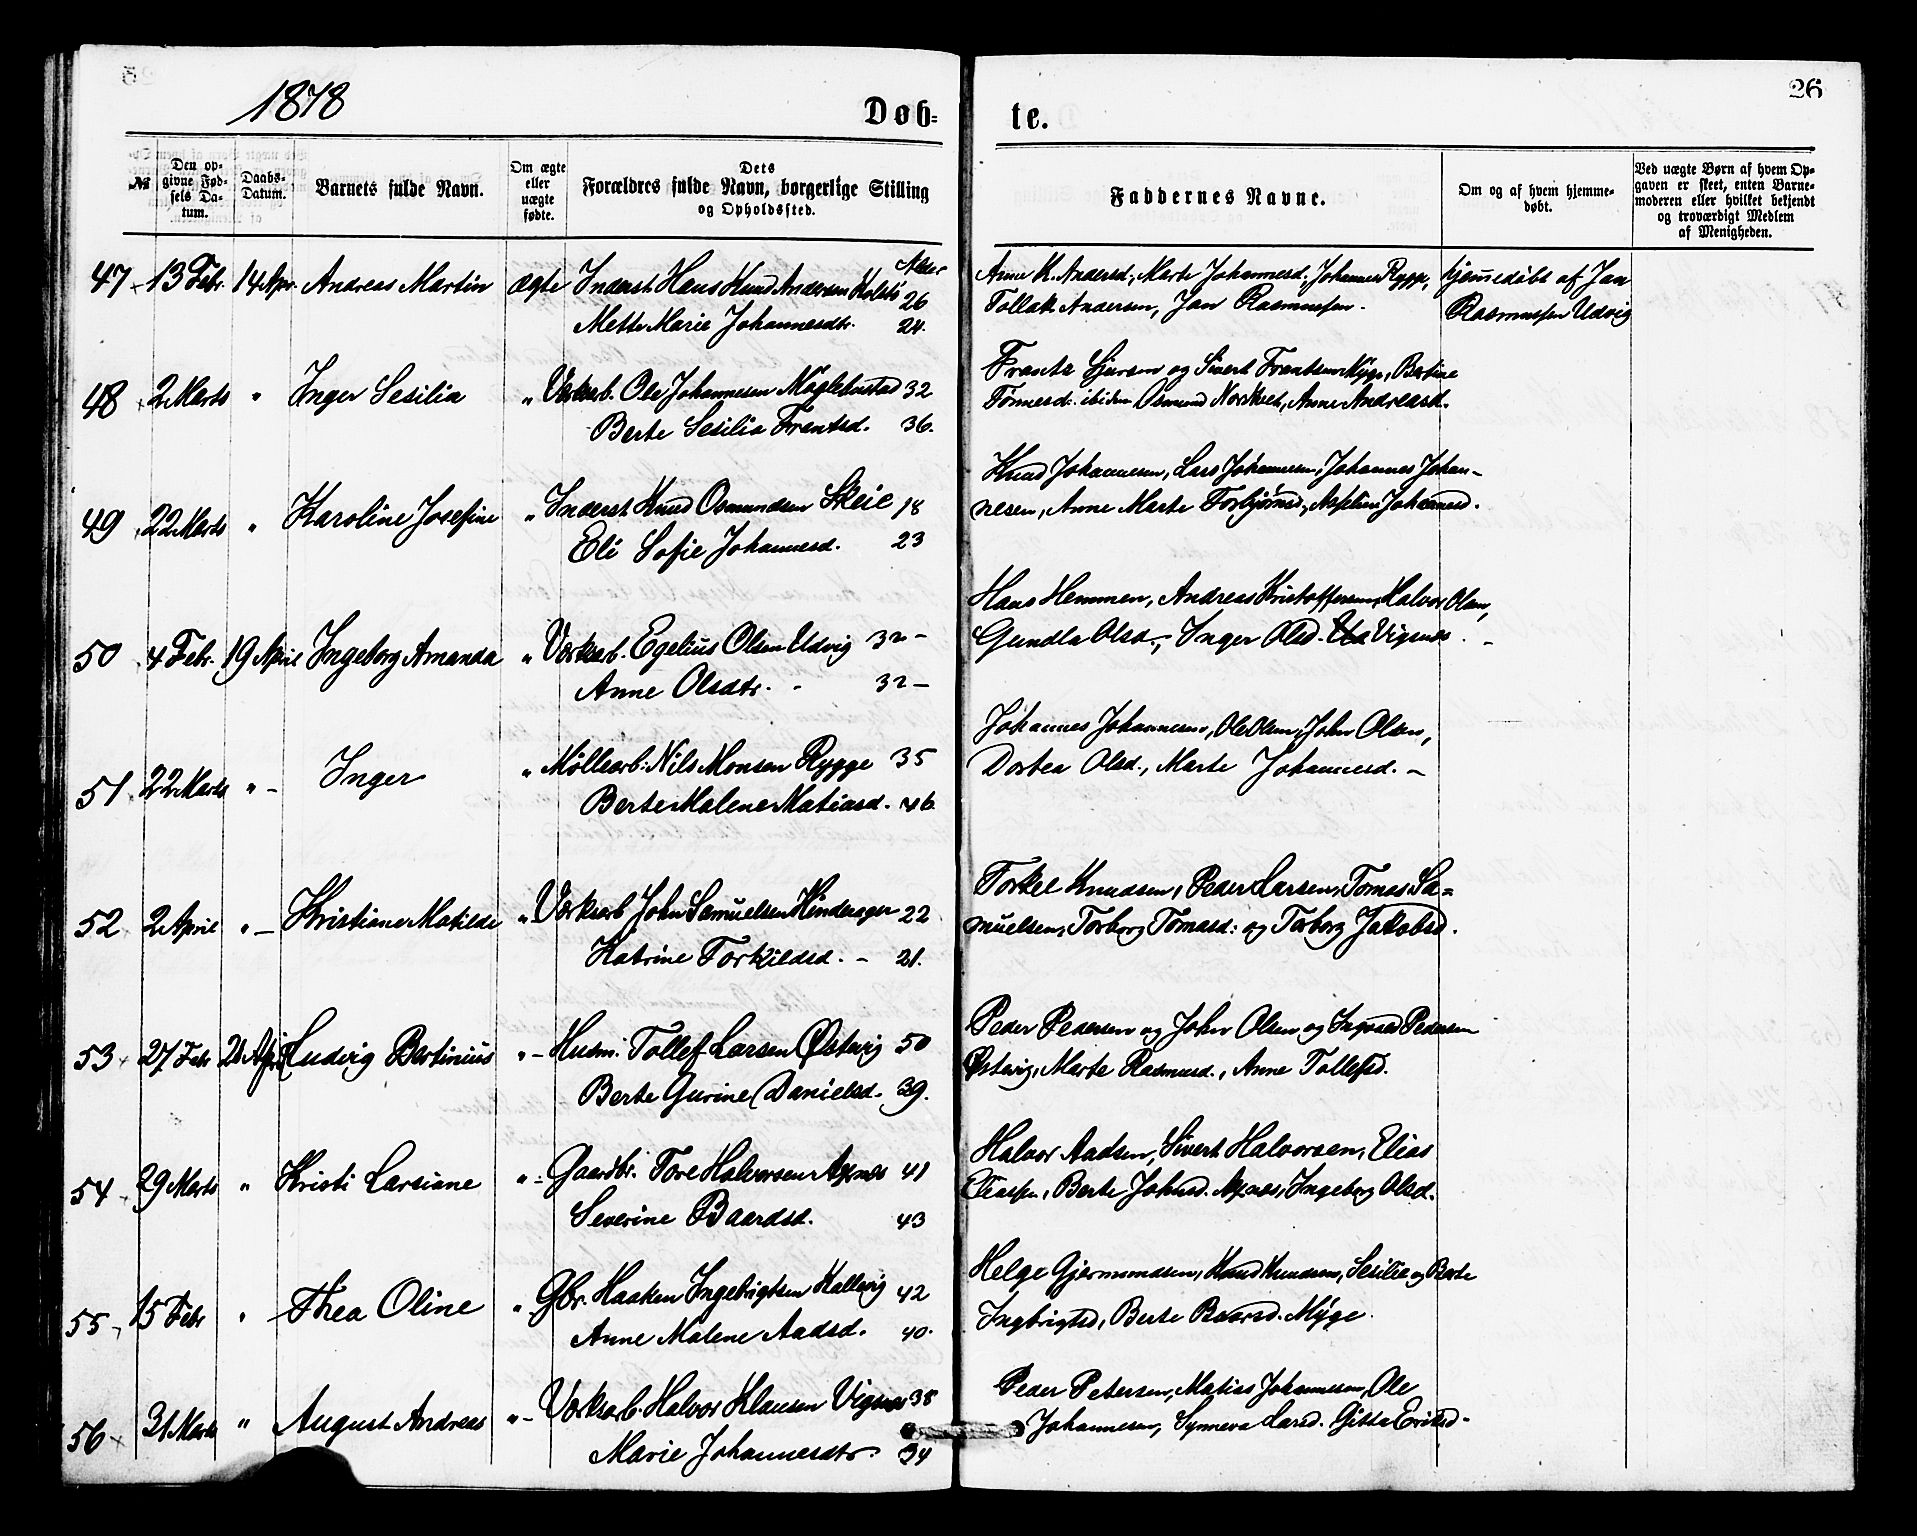 1878
Døb-
te.
26
№
Den op-
givne Fød-
sels Da-
tum.
Daabs-
Datum.
Barnets fulde Navn.
Om ægte
eller
uægte
fødte.
Dets
Forældres fulde Navn, borgerlige Stilling
og Opholdssted.
Faddernes Navne.
Om og af hvem hjemme-
døbt.
Ved uægte Børn af hvem Op-
gaven er skeet, enten Barne-
moderen eller hvilket bekjendt
og troværdigt Medlem
af Menigheden.
Alder
47 13 Febr. 14 Apr. Andreas Martin ægte Inderst Hans Knud Andersen Kolstø 26
Mette Marie Johannesdtr. 24.
Anne K. Andersd., Marte Johannesd., Johannes Rygge,
Tollak Andersen, Jan Rasmussen.
hjemmedøbt af Jan
Rasmussen Udvig
48 2 Marts " Inger Sesilia " Værksarb. Ole Johannesen Møglebustad 32
Berte Sesilia Frantsd. 36.
Frants Sjursen og Sivert Frantsen Myge, Bertine
Tormesd. ibidem Osmund Norkvet, Anne Andreasd.
49 22 Marts " Karoline Josefine " Inderst Knud Osmundsen Skeie 18
Eli Sofie Johannesd. 23
Knud Johannesen, Lars Johannesen, Johannes Johan-
nesen, Anne Marte Torbjørnsd, Johannesd.
50 4 Febr. 19 April Ingeborg Amanda " Værksarb. Egelius Olsen Udvig 32 -
Anne Olsdtr. - 32 -
Hans Hemmen, Andreas Kristoffersen, Halvor Olsen,
Gundla Olsd., Inger Olsd. Vigsnes. -
51 22 Marts " - Inger " Møllearb. Nils Monsen Rygge 35
Berte Malene Matiasd. 46.
Johannes Johannesen, Ole Olsen, John Olsen,
Dortea Olsd., Marte Johannesd. -
52 2 April " - Kristiane Matilde " Værksarb John Samuelsen Hinderager 22
Katrine Torkildsd. - 21.
Torkel Knudsen, Peder Larsen, Tomas Sa=
muelsen, Torborg Tomasd. og Torborg Jakobsd.
53 27 Febr 28 April Ludvig Bertinius " - Husm. Tollef Larsen Østevig 50
Berte Gurine Danielsd. 39.
Peder Pedersen og John Olsen og Ingvald Pedersen
Østevig, Marte Rasmusd., Anne Tollefsd.
54 29 Marts " Kristi Larsiane " - Gaardbr. Tore Halvorsen Apnes 41
Severine Baardsd. 43
Halvor Aadsen, Sivert Halvorsen, Elias
Eliassen, Berte Johnsd. Apnes, Ingeborg Olsd.
55 15 Febr " Thea Oline " Gbr. Haaken Ingebrigtsen Kallevig 42
Anne Malene Aadsd. 40.
Helge Gjermundsen, Knud Knudsen, Sesilie og Berte
Ingbrigtsd, Berte Baarsd. Myge.
56 31 Marts " August Andreas " - Værksarb. Halvor Klausen Vigsnes 38
Marie Johannesdtr. 34
Peder Petersen, Matias Johannesen, Ole
Johannesen, Synneva Larsd. Gitta Eriksd.